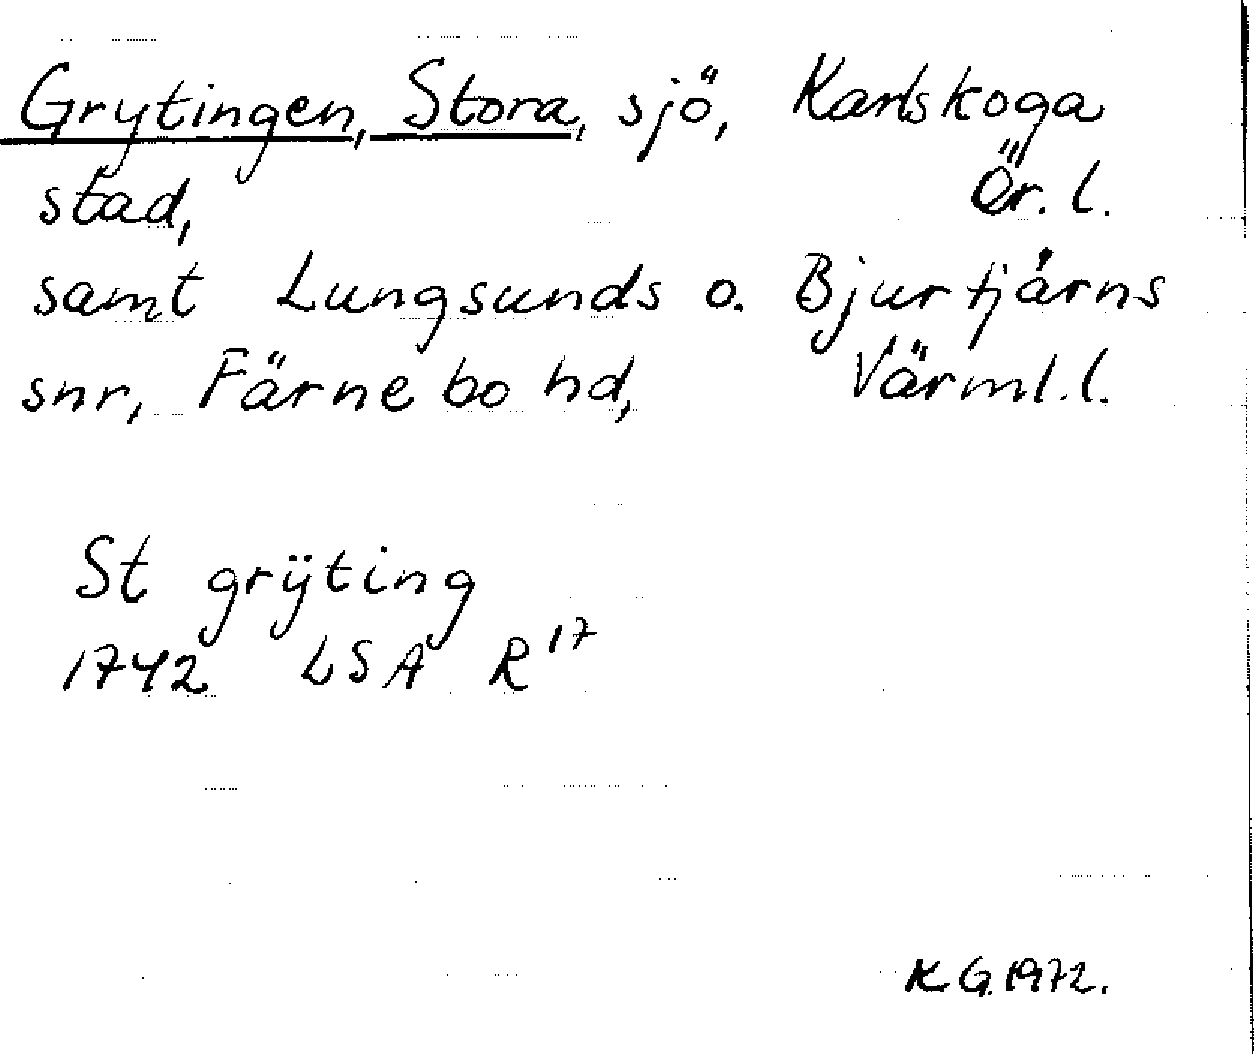 Grytingen, Stora, sjö, Karlskoga
stad, Ör. l.
samt Lungsunds o. Bjurtjärns
snr, Färnebo hd, Värml. l.
St grÿting
1742 LSA R 17
K G. 1972.